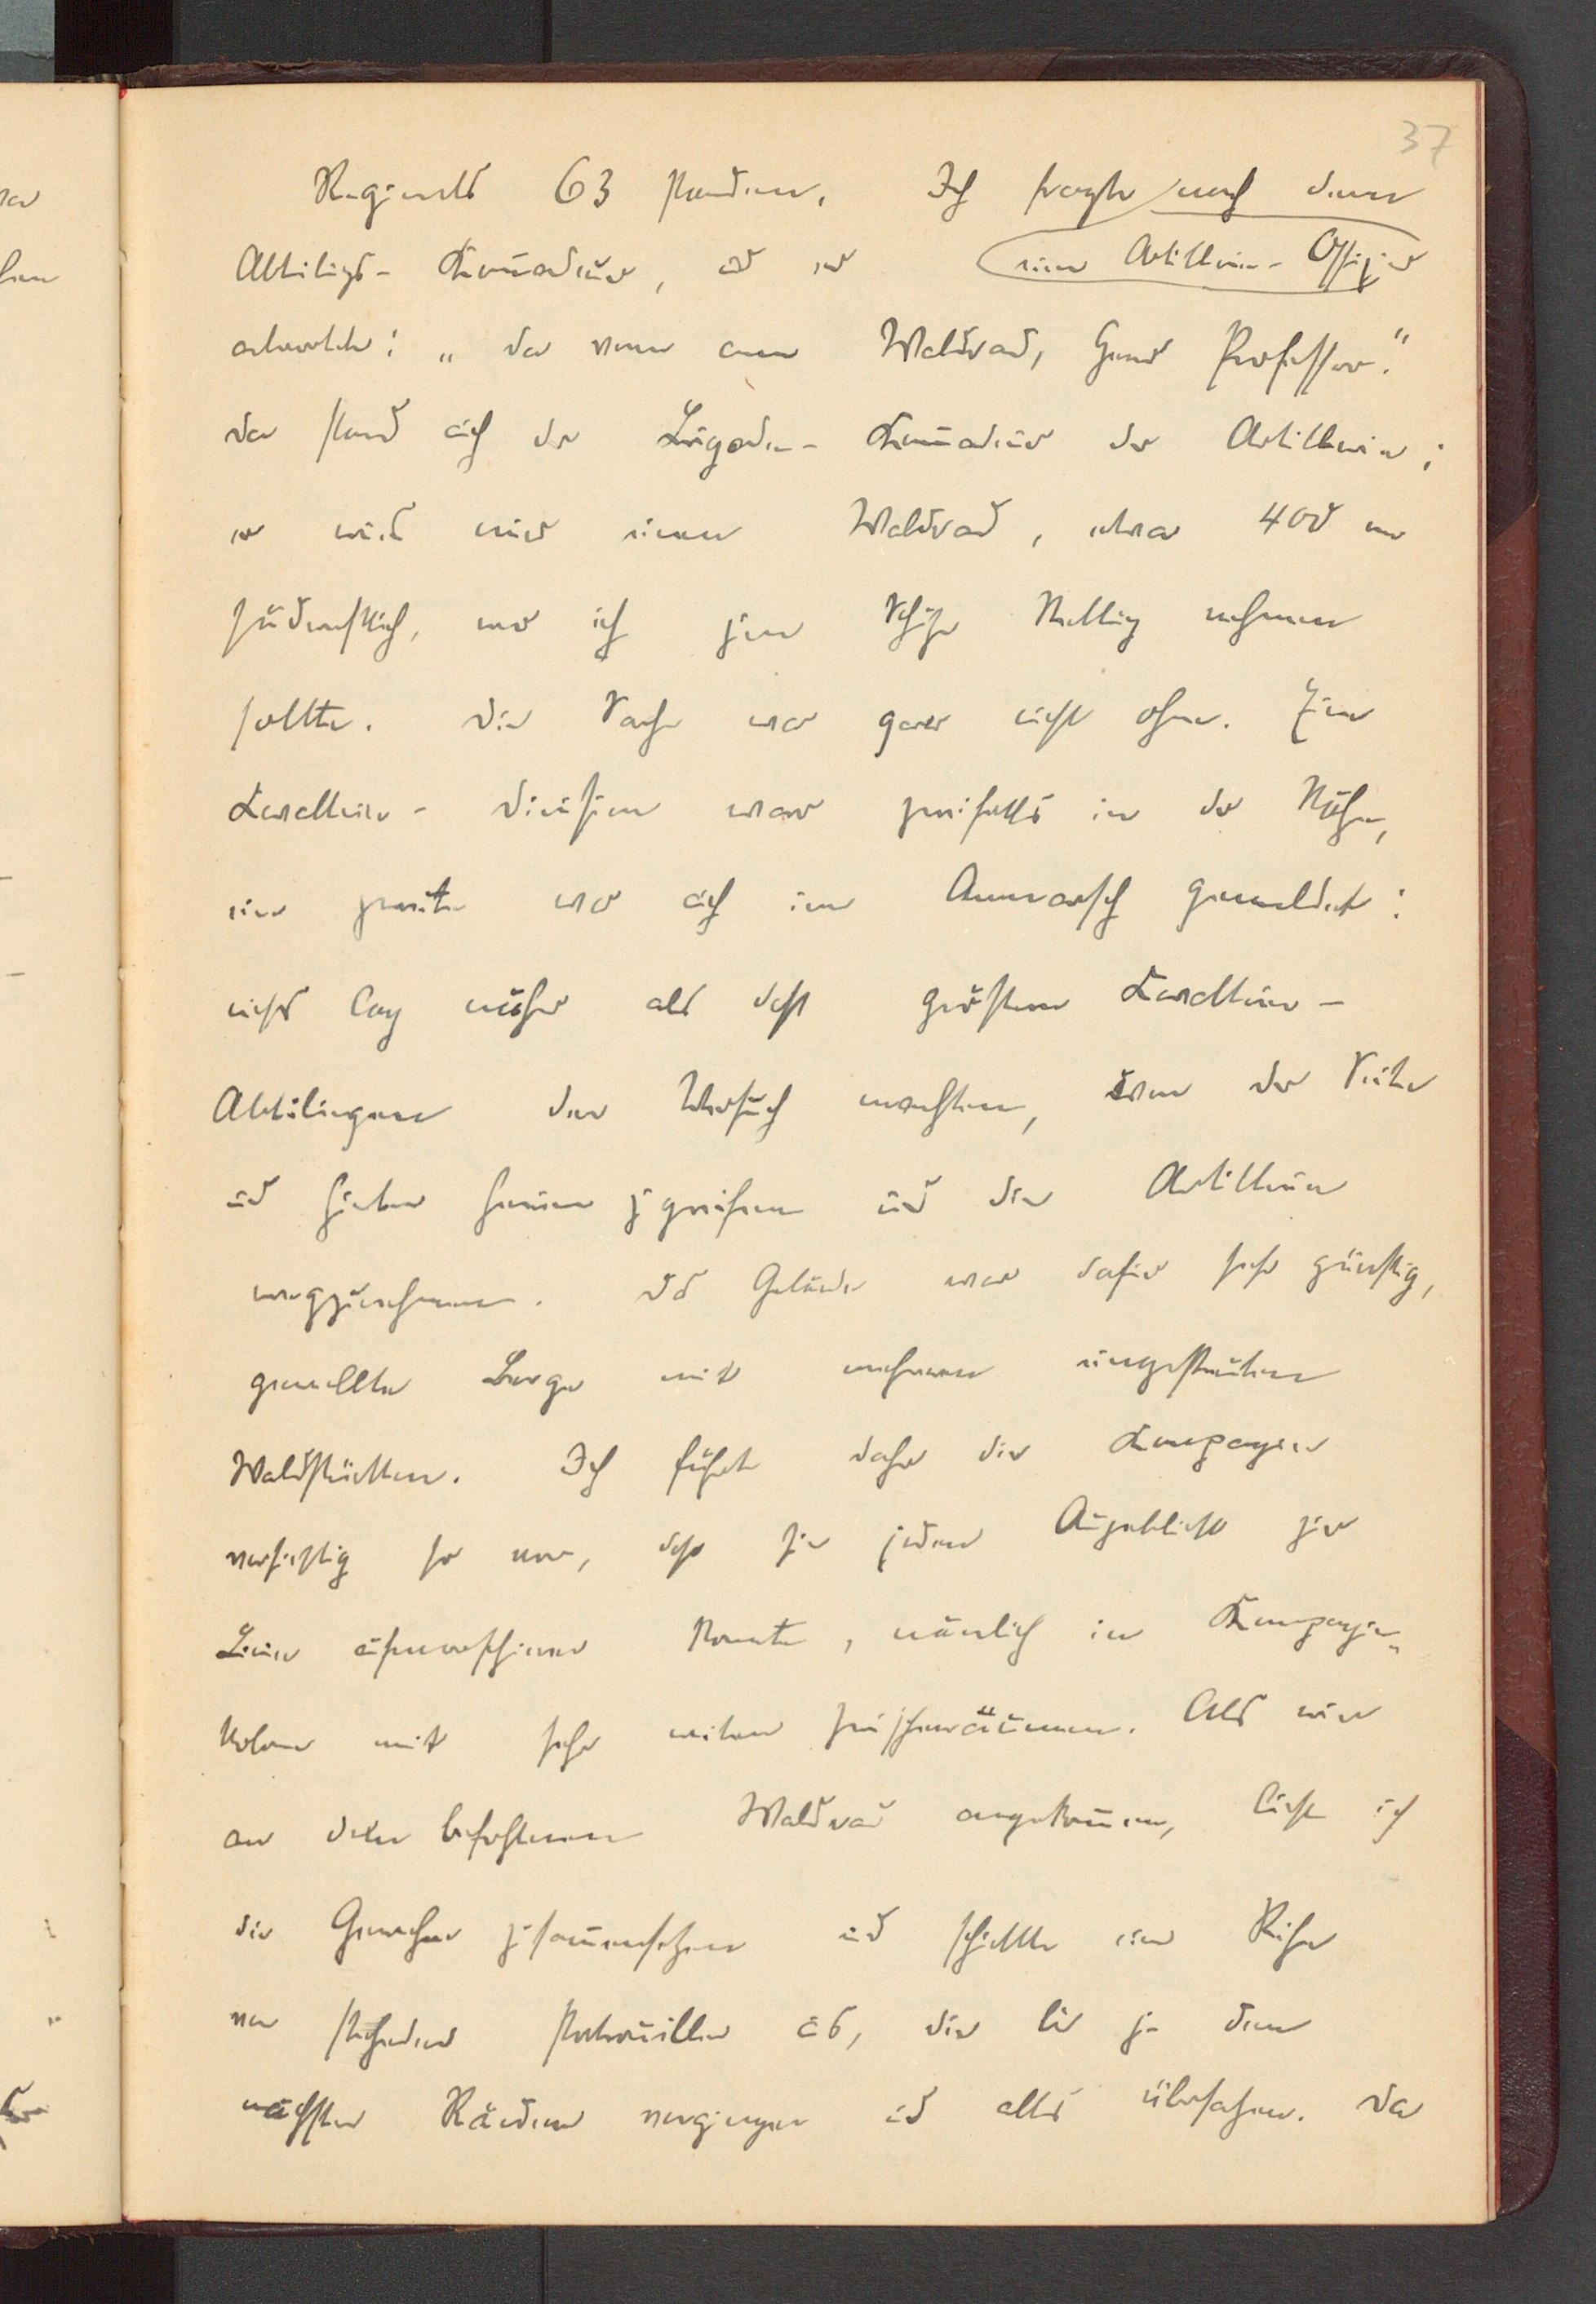 37
Regiments 63 standen. Ich fragte nach dem
Abteilungs-Kommandeur, und er einen Artillerie-Offizier
antwortete: „da vorn am Waldrand, Herr Professor."
Da stand auch der Brigade-Kommandeur der Artillerie;
er wies mir einen Waldrand, etwa 400 m
südwestlich, wo ich zum Schutze Stellung nehmen
sollte. Die Sache war gar nicht ohne. Eine
Kavallerie-Division war zweifellos in der Nähe,
eine zweite war auch im Anmarsch gemeldet:
nichts lag näher als dass grössere Kavallerie-
Abteilungen den Versuch machten, von der Seite
und hinten herum zugreifen und die Artillerie
wegzunehmen. Das Gelände war dafür sehr günstig,
gewellte Berge mit mehreren eingestreuten
Waldstücken. Ich führte daher die Kompagnie
vorsichtig so vor, dass sie jeden Augenblick zur
Linie aufmarschieren konnte, nämlich in Kompagnie-
kolonne mit sehr weiten Zwischenräumen. Als wir
an dem befohlenen Waldrand angekommen, liess ich
die Gewehre zusammensetzen und schickte eine Reihe
von stehenden Patrouillen aus, die bis zu den
nächsten Rändern vorgingen und alles übersahen. Da